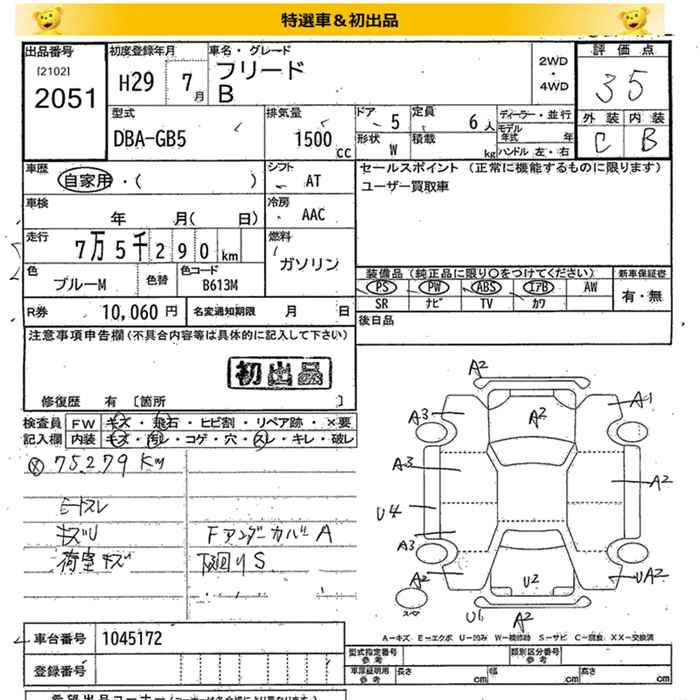 特選車＆初出品
出品番号
[2102]
2051
初度登録年月
H29 7月
車名・グレード
フリード
B
2WD
・
4WD
評価点
35
型式
DBA-GB5
排気量
1500 CC
ドア 5
定員 6人
形状 W
積載 kg
ディーラー・並行
モデル年式 年
ハンドル 左・右
外装 内装
C B
車歴
自家用・( )
シフト
AT
セールスポイント (正常に機能するものに限ります)
ユーザー買取車
車検
年 月( 日)
冷房
AAC
走行
7万5千290km
燃料
ガソリン
色
ブルーM
色替
色コード
B613M
装備品(純正品に限り○をつけてください)
新車保証書
PS PW ABS エアB AW
有・無
SR ナビ TV カワ
R券 10,060円
名変通知期限 月 日
後日品
注意事項申告欄(不具合内容等は具体的に記入して下さい)
初出品
修復歴 有〔箇所 〕
検査員
記入欄
FW キズ・飛石・ヒビ割・リペア跡・×要
内装 キズ・汚レ・コゲ・穴・スレ・キレ・破レ
75279 Km
シートスレ
キズU
Fアンダーカバー A
荷室キズ
下廻り S
A2
A3
A1
A2
A3
A2
U4
A3
A2
U2
UA2
スペア
U6
A2
A-キズ E-エクボ U-凹み W-補修跡 S-サビ C-腐食 XX-交換済
車台番号 1045172
型式指定番号
参考
類別区分番号
参考
登録番号
車庫証明用
参考
長さ cm
幅 cm
高さ cm